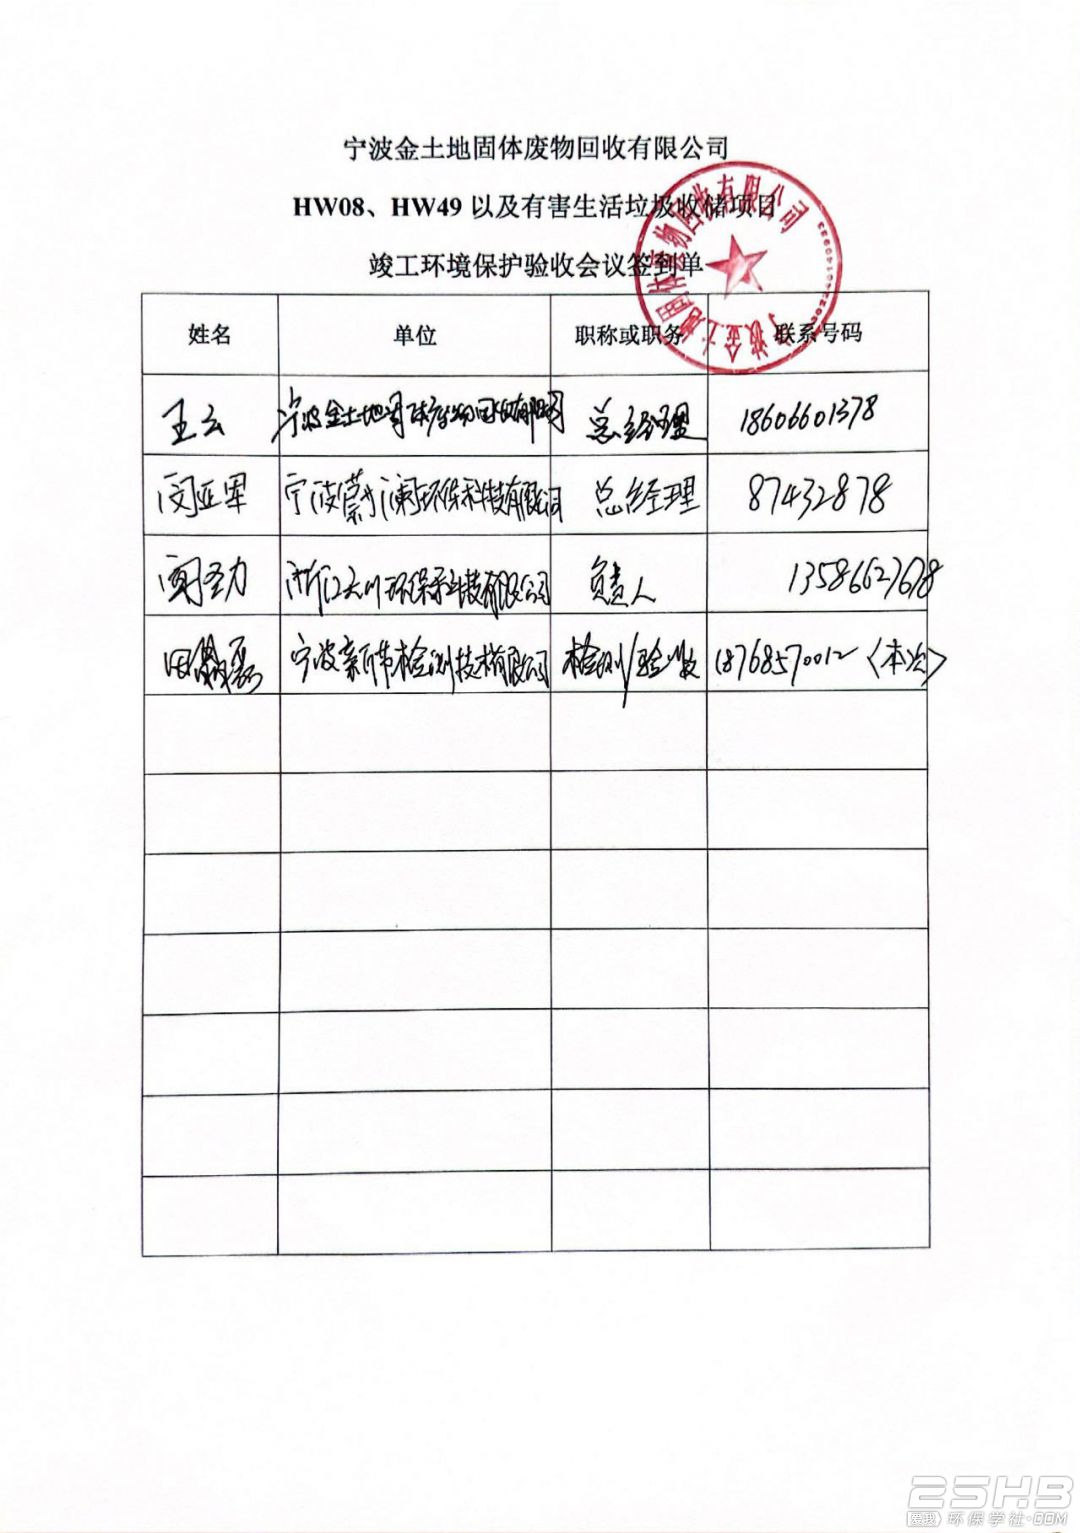 宁波金土地固体废物回收有限公司
HW08、HW49 以及有害生活垃圾收储项目
竣工环境保护验收会议签到单
宁波金土地固体废物回收有限公司
姓名 单位 职称或职务 联系号码
王云 宁波金土地固体废物回收有限公司 总经理 18606601378
闵亚军 宁波蔚澜环保科技有限公司 总经理 87432878
闻圣力 浙江天川环保科技有限公司 负责人 13586627678
田 磊 宁波新节检测技术有限公司 检测/验收 18768570012 〈本次〉
25HB
爱我 环保学社.COM